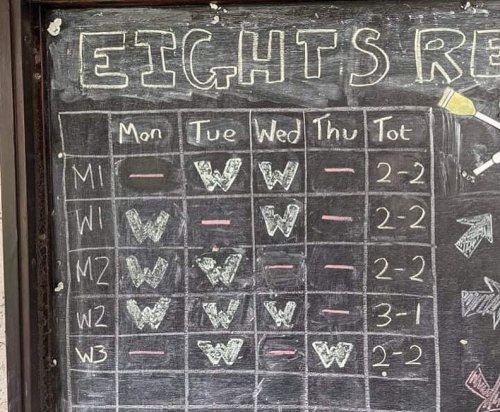 EIGHTS RE
Mon Tue Wed Thu Tot
M1 — W W — 2-2
W1 W — W — 2-2
M2 W W — — 2-2
W2 W W W — 3-1
W3 — W — W 2-2